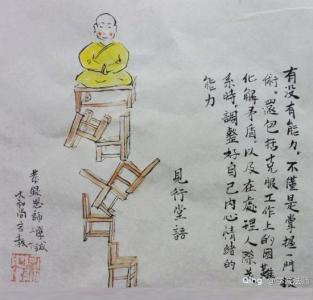 有没有能力，不僅是掌握一門
術。還包括克服工作上的困難
化解矛盾，以及在處理人際关
系時，調整好自己内心情緒的
能力
見行堂語
大和尚
Qing